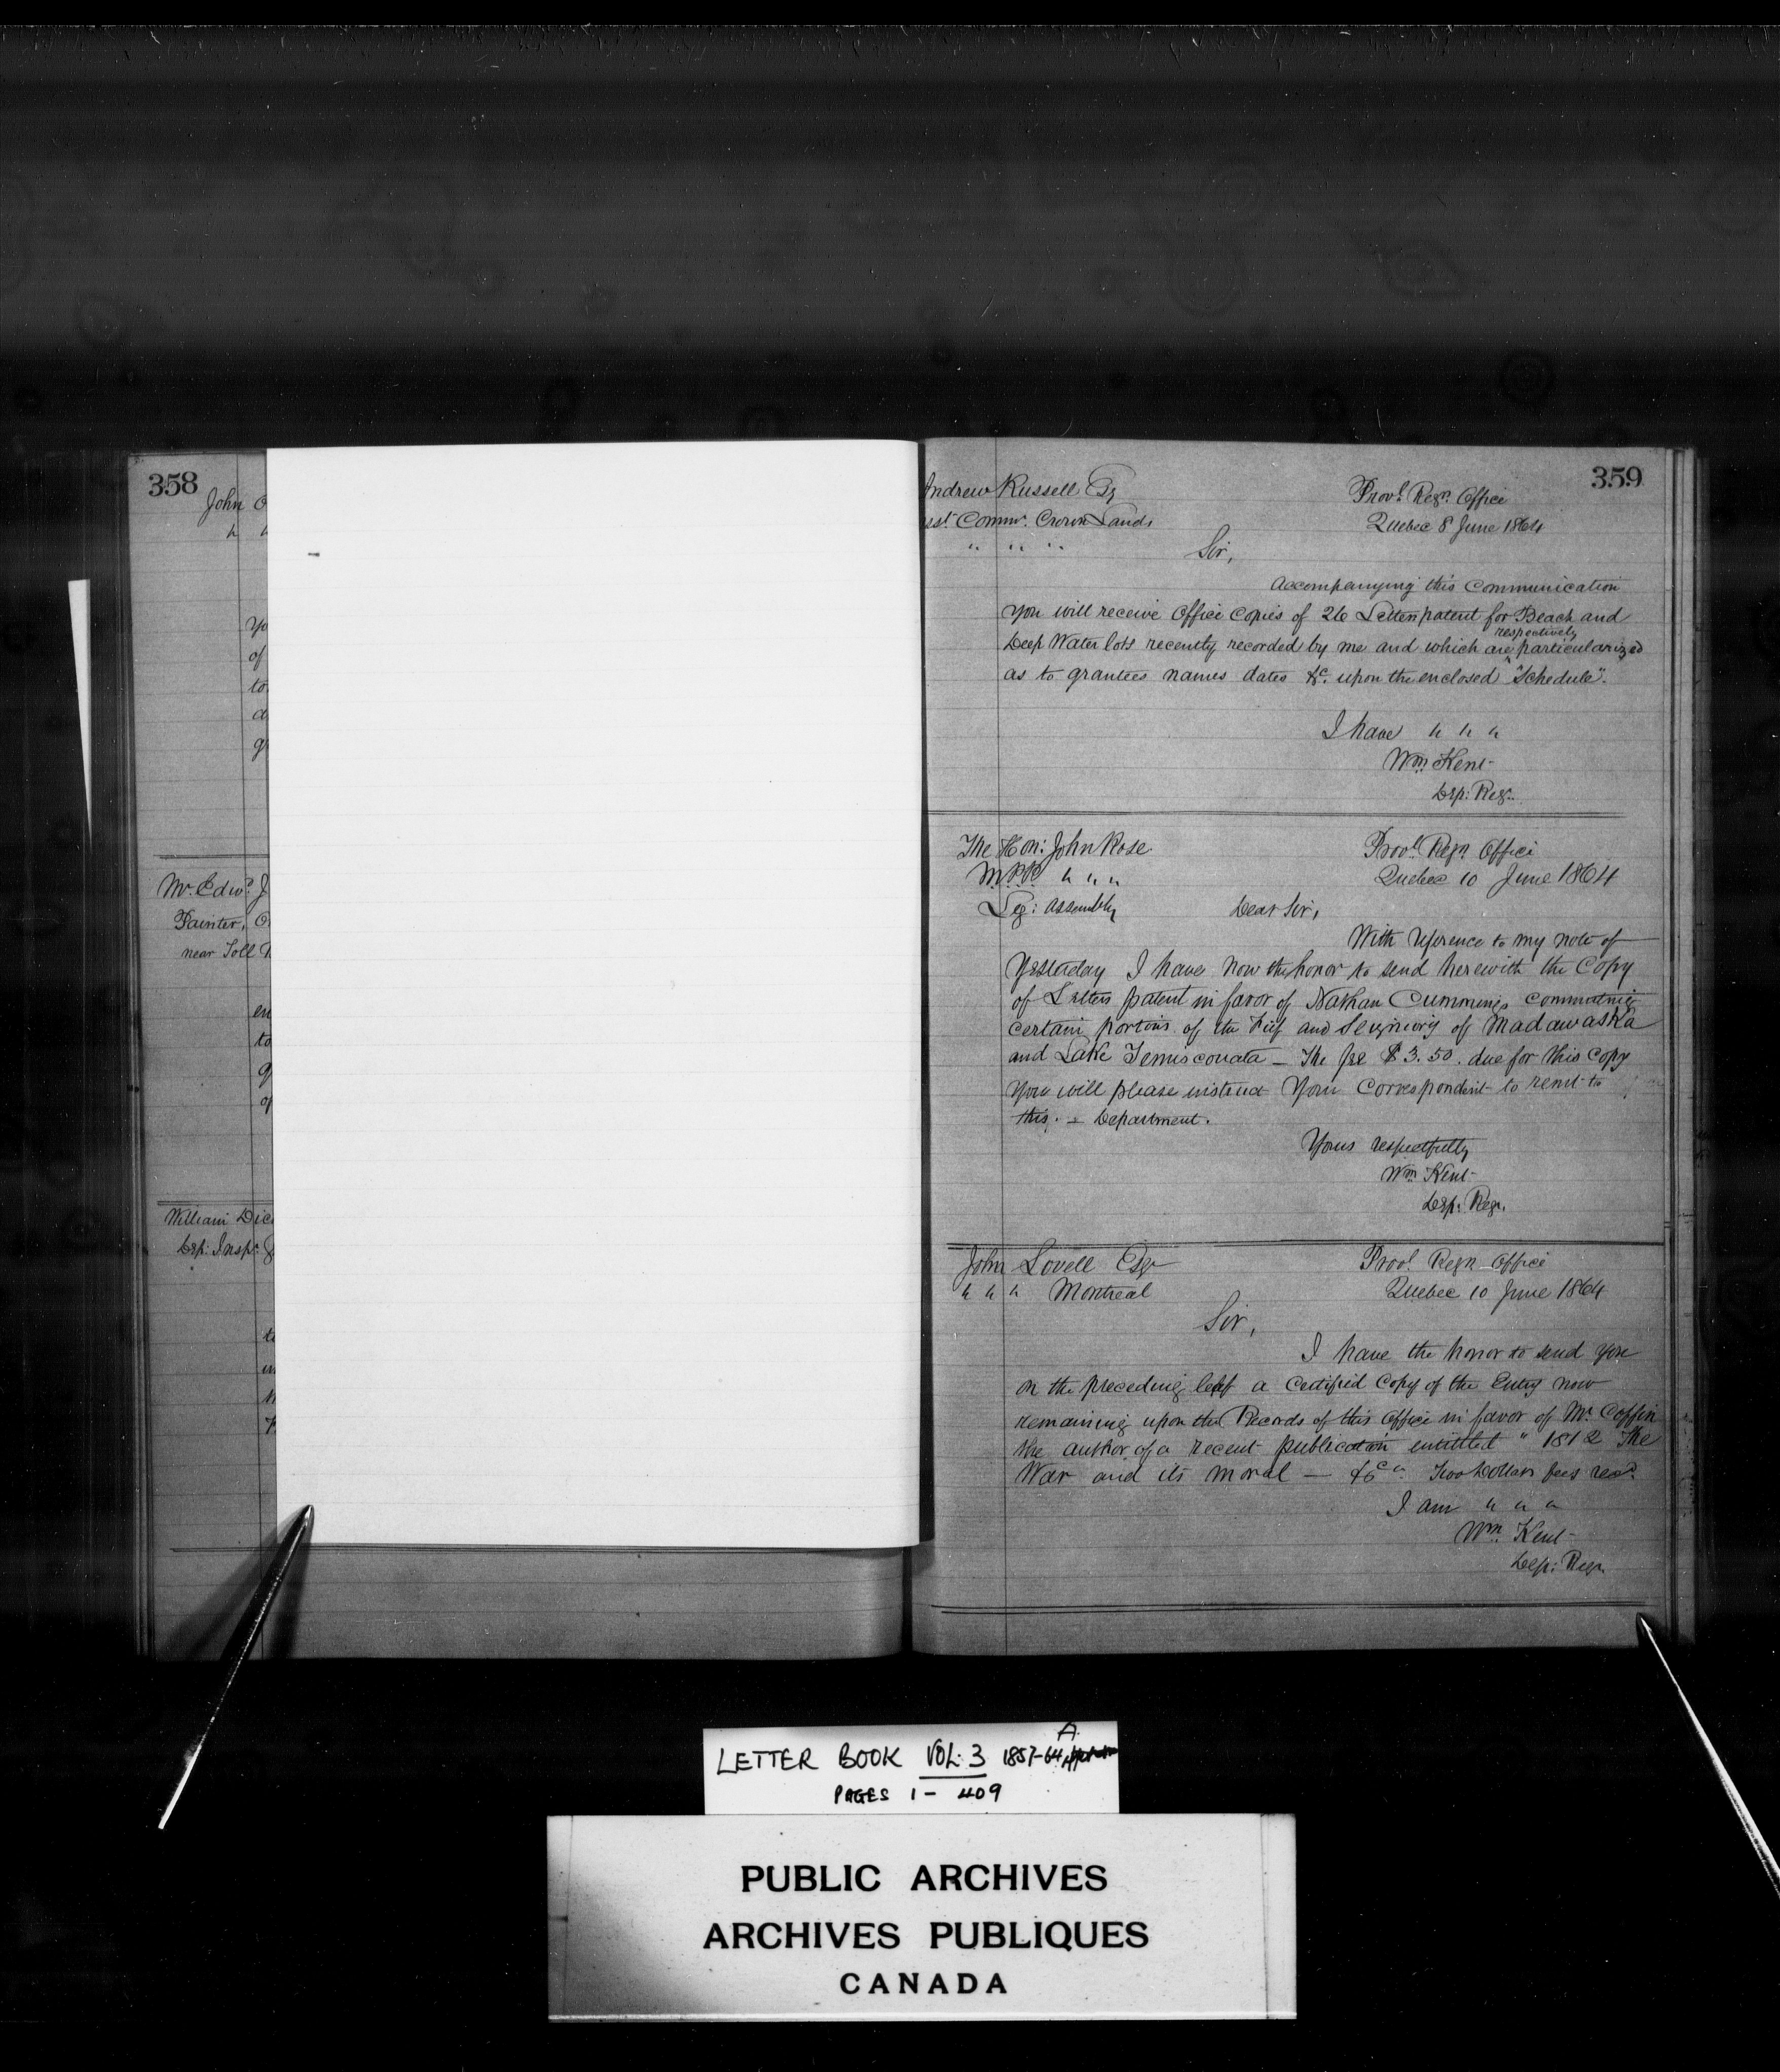 358
John
Yo
of
to
Mr Edwd. J
Painter,
near Toll
en
to
William Dic
Dep: Inspr. G
359
Andrew Russell Esq
Provl. Regr. Office
sst. Commr. Crown Lands
Quebec 8 June 1864
" " "
Sir,
Accompanying this Communication
You will receive Office Copies of 26 Letters patent for Beach and
respectively
Deep Water lots recently recorded by me and which are particularized
as to grantees names dates &c. upon the enclosed "Schedule".
I have " " "
Wm. Kent
Dep: Regr.
The Hon: John Rose
Provl. Regr. Office
M.P.P. " " "
Quebec 10 June 1864
Leg: Assembly
Dear Sir,
With reference to my note of
Yesterday I have now the honor to send herewith the Copy
of Letters patent in favor of Nathan Cummings commuting
certain portions of the Fief and Seigniory of Madawaska
and Lake Temiscouata — The fee $3.50. due for this Copy
You will please instruct Your Correspondent to remit to
this. — Department.
Yours respectfully
Wm. Kent
Dep: Regr.
John Lovell Esqr
Provl. Regr. Office
" " " Montreal
Quebec 10 June 1864
Sir,
I have the honor to send you
on the preceding leaf a Certified Copy of the Entry now
remaining upon the Records of this Office in favor of Mr. Coffin
the author of a recent publication entitled " 1812 The
War and its moral — &c " Two Dollars fees recd.
I am " " "
Wm. Kent
Dep: Regr.
LETTER BOOK VOL. 3 1857-64 A
PAGES 1 - 409
PUBLIC ARCHIVES
ARCHIVES PUBLIQUES
CANADA